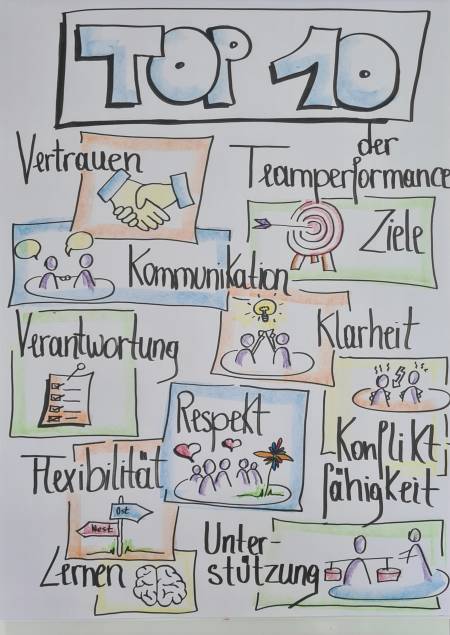 TOP 10
der
Teamperformance
Vertrauen
Ziele
Kommunikation
Klarheit
Verantwortung
Respekt
Konflikt-
fähigkeit
Flexibilität
Ost
West
Lernen
Unter-
stützung